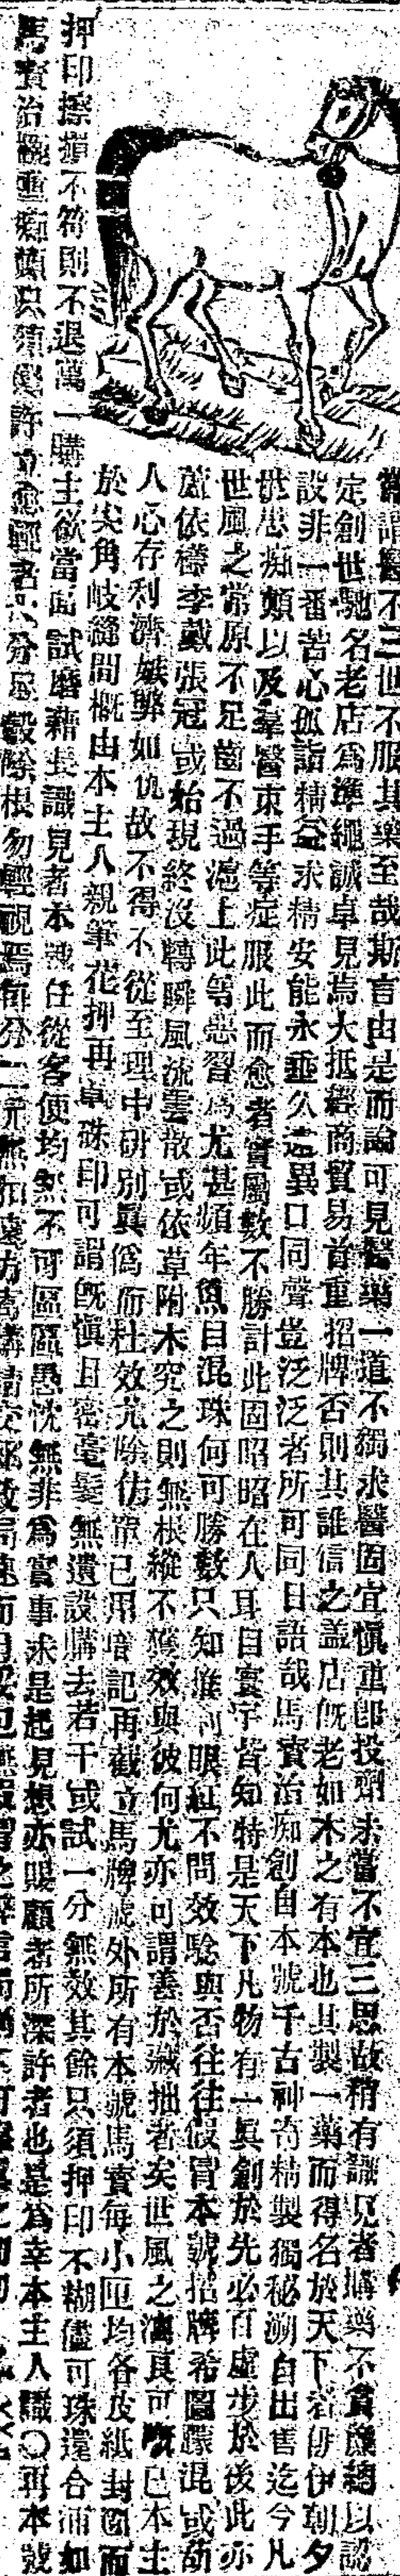 嘗謂醫不三世不服其藥至哉斯言由是而論可見醫藥一道不獨求醫固宜愼重卽投劑未嘗不宜三思故稍有識見者購藥不貪廉總以認
定創世馳名老店爲準繩誠卓見焉大抵經商貿易首重招牌否則其誰信之蓋店旣老如木之有本也其製一藥而得名於天下者俳伊朝夕
設非一番苦心孤詣精益求精安能永垂久遠異口同聲豈泛泛者所可同日語哉馬寳治痴創自本號千古神奇精製獨秘溯自出售迄今凡
世患痴癲以及羣醫束手等症服此而愈者實屬數不勝計此固昭昭在人耳目寰宇皆知特是天下凡物有一眞創於先必百虛步於後此亦
世風之常原不足齒不過滬上此等惡習爲尤甚頻年魚目混珠何可勝數只知惟利眼紅不問效驗與否往往假冒本號招牌希圖矇混或葫
蘆依樣李戴張冠或始現終沒轉瞬風流雲散或依草附木究之則無根縱不獲效與彼何尤亦可謂善於藏拙者矣世風之澆良可慨已本主
人心存利濟嫉弊如仇故不得不從至理中硏別眞僞而杜效尤除仿單已用暗記再截立馬牌號外所有本號馬寳每小匣均各皮紙封固而
於尖角岐縫間槪由本主人親筆花押再章硃印可謂旣愼且密毫髮無遺設購去若干或試一分無效其餘只須押印不糊儘可珠還合浦如
押印擦損不符則不退萬一購主欲當面試磨藉長識見者本號任從客便均無不可區區愚忱無非爲實事求是起見想亦賜顧者所深許者也是爲幸本主人識〇再本號
馬寳治極重痴癲只須錢許立愈輕者六分足穀除根勿輕視焉每分二元無扣遠方